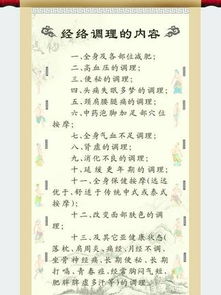 经络调理的内容
一.全身及各部位减肥;
二.高血压的调理;
三.便秘的调理;
四.头痛失眠多梦的调理;
五.颈肩腰腿痛的调理;
六.中药泡脚加足部穴位
按摩;
七.全身气血不足调理;
八.肾虚的调理;
九.消化不良的调理;
十.延缓更年期的调理;
十一.全身保健按摩(远远
优于,舒适于传统中式或泰式
按摩);
十二.改变面部肤色的调
理;
十三.及其它亚健康状态(
落枕,肩周炎,痛经,月经不调,
坐骨神经痛,长期便秘,长期
打嗝,青春痘,经常胸闷气短,
肥胖脾虚多汗等)的调理。